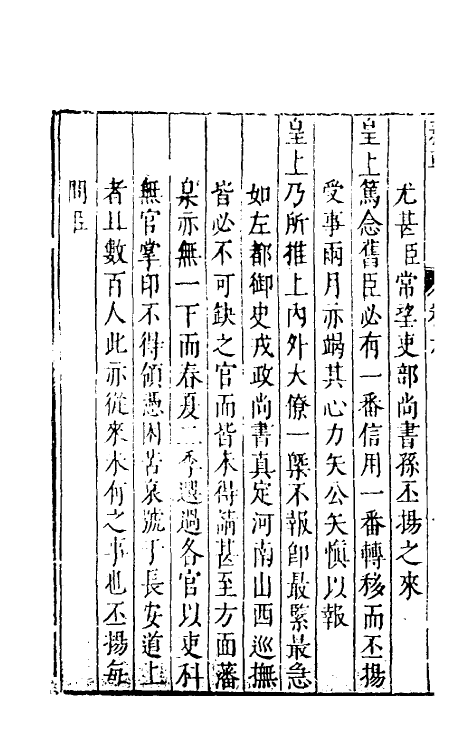 尤甚臣常望吏部尚書孫丕揚之來
皇上篤念舊臣必有一番信用一番轉移而丕揚
受事兩月亦竭其心力矢公矢慎以報
皇上乃所推上內外大僚一槩不報卽最緊最急
如左都御史戎政尚書真定河南山西巡撫
皆必不可缺之官而皆未得請甚至方面藩
臬亦無一下而春夏二季選過各官以吏科
無官掌印不得領憑困苦哀號于長安道上
者且數百人此亦從來未有之事也丕揚每
問臣